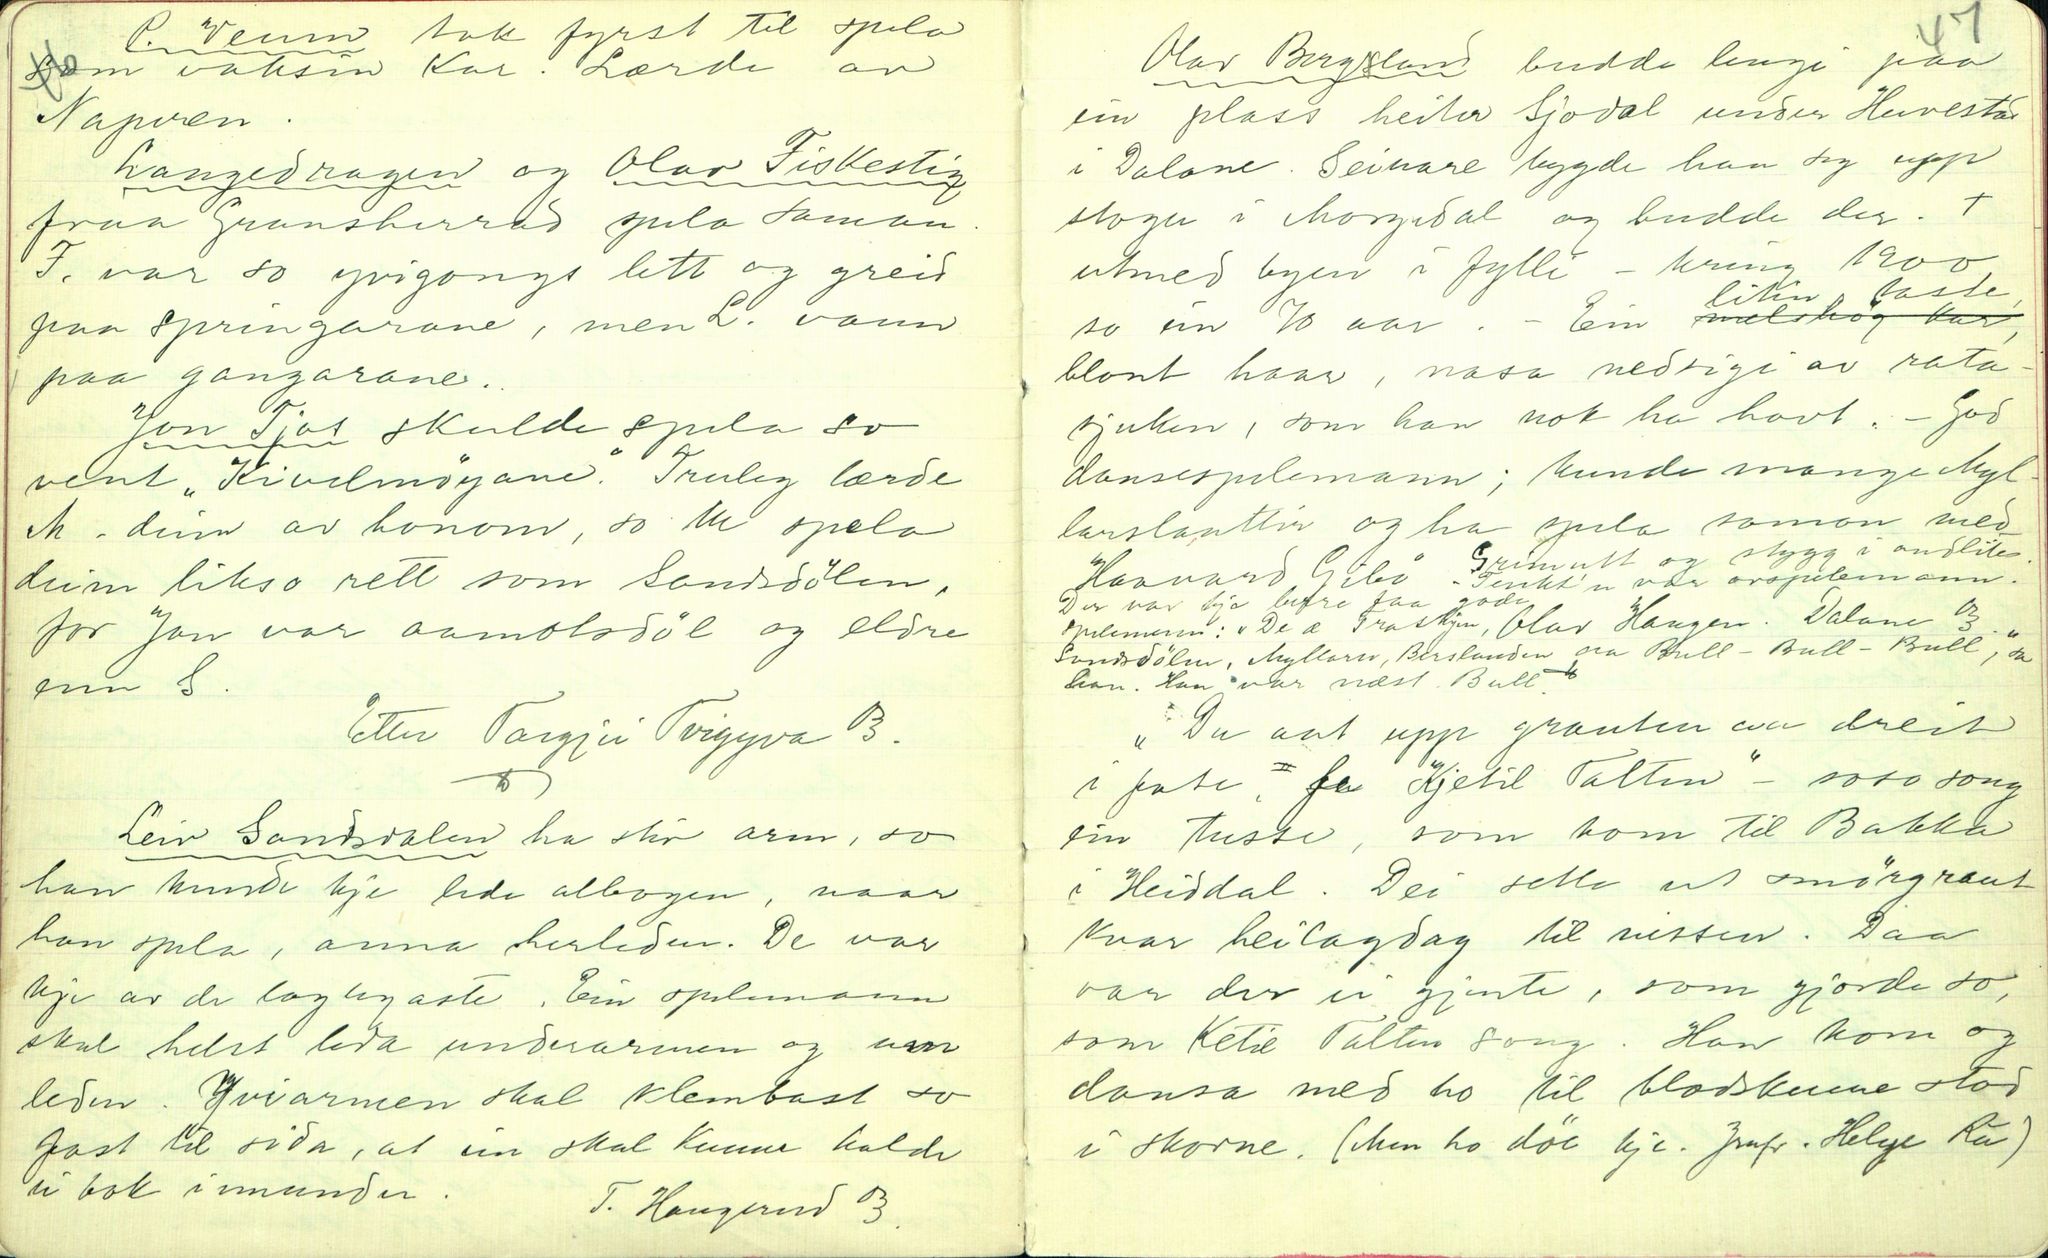 46
P. Veum tok fyrst til spela
som vaksin Kar. Lærde av
Napren.
Langedragen og Olav Fiskestig
fraa Gransherrad spela saman.
F. var so yvigongs lett og greid
paa springarane, men L. vann
paa gangarane.
Jon Tjøs skulde spela so
vent „Kivlemöyane“. Truleg lærde
M. deim av honom, so M spela
deim likso rett som Sandsdölen,
for Jon var aamotsdöl og eldre
enn S.
Etter Targjei Tvigyva B.
Leiv Sandsdalen ha stiv arm, so
han kunde kje lede albogen, naar
han spela, anna herleden. De var
kje av de laglegaste. Ein spelemann
skal helst leda underarmen og
leden. Yviarmen skal klembast so
fast til sida, at ein skal kunne halde
ei bok innunder.
T. Haugerud B.
47
Olav Bergsland budde lengi paa
ein plass heiter Sjodal under Huvestad
i Dalane. Seinare bygde han seg upp
stoge i Morgedal og budde der. †
utmed byen i fylli - kring 1900
so ein 70 aar. - Ein litin, taste,
blont haar, nasa nedsigi av rata-
sjuken, som han nok ha havt. - God
dansespelemann; kunde mange Myl-
larslaattir og ha spela saman med
Haavard Gibö. Grimutt og stygg i andlite.
- Tenkt'n var ovspelemann.
Der var kje befre faa gode
spelemenn: „De æ Traskjen, Olav Haugen. Dalane B.
Sandsdölen, Myllaren, Berslanden aa Bull - Bull - Bull“, sa
han. Han var næst Bull.“
„Du aat upp grauten aa dreit
i fate, sa Kjetil Falten“ - soso song
ein tusse, som kom til Bakka
i Heiddal. Dei sette ut smörgraut
kvar heilagdag til nissen. Daa
var der ei gjente, som gjorde so,
som Ketil Falten song. Han kom og
dansa med ho til blodskuune stod
i skorne. (Men ho döe kje. Jmfr. Helge Rü)